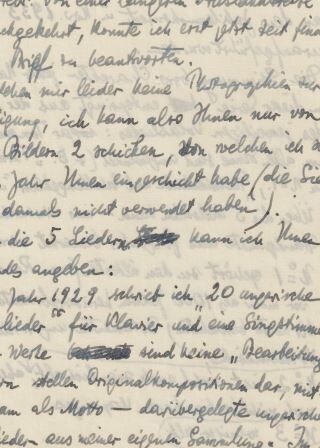 von einer längeren
ckgekehrt, konnte ich erst jetzt Zeit fin
Brief zu beantworten.
ehen mir leider keine Photographien zur
igung, ich kann also Ihnen nur von
Bildern 2 schicken, von welchen ich
Jahr Ihnen eingeschickt habe (die Sie
damals nicht verwendet haben).
die 5 Liedern kann ich Ihnen
des angeben:
Jahr 1929 schrieb ich „20 ungarische
lieder" für Klavier und eine Singstimme
Werke sind keine „Bearbeitung
rn stellen Originalkompositionen dar, mit
am als Motto — darübergelegte ungarische
lieder aus meiner eigenen Sammlung.